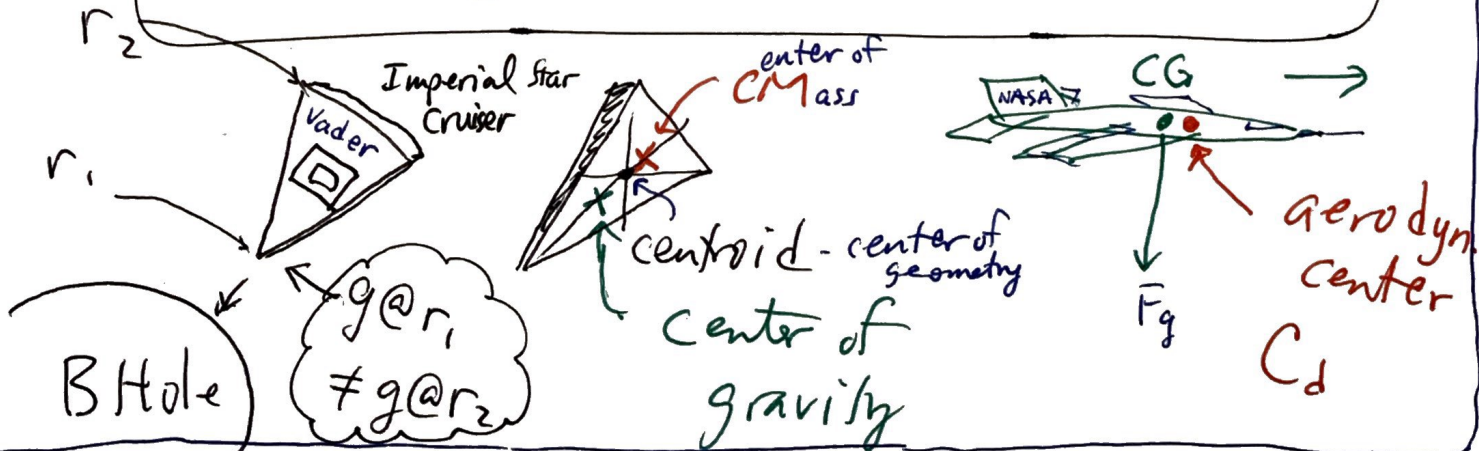 r₂
Imperial Star
Cruiser
Vader
r₁
g@r₁
≠g@r₂
B Hole
enter of
CMass
centroid - center of
geometry
center of
gravity
CG
NASA 7
F̄g
aerodyn.
center
Cd